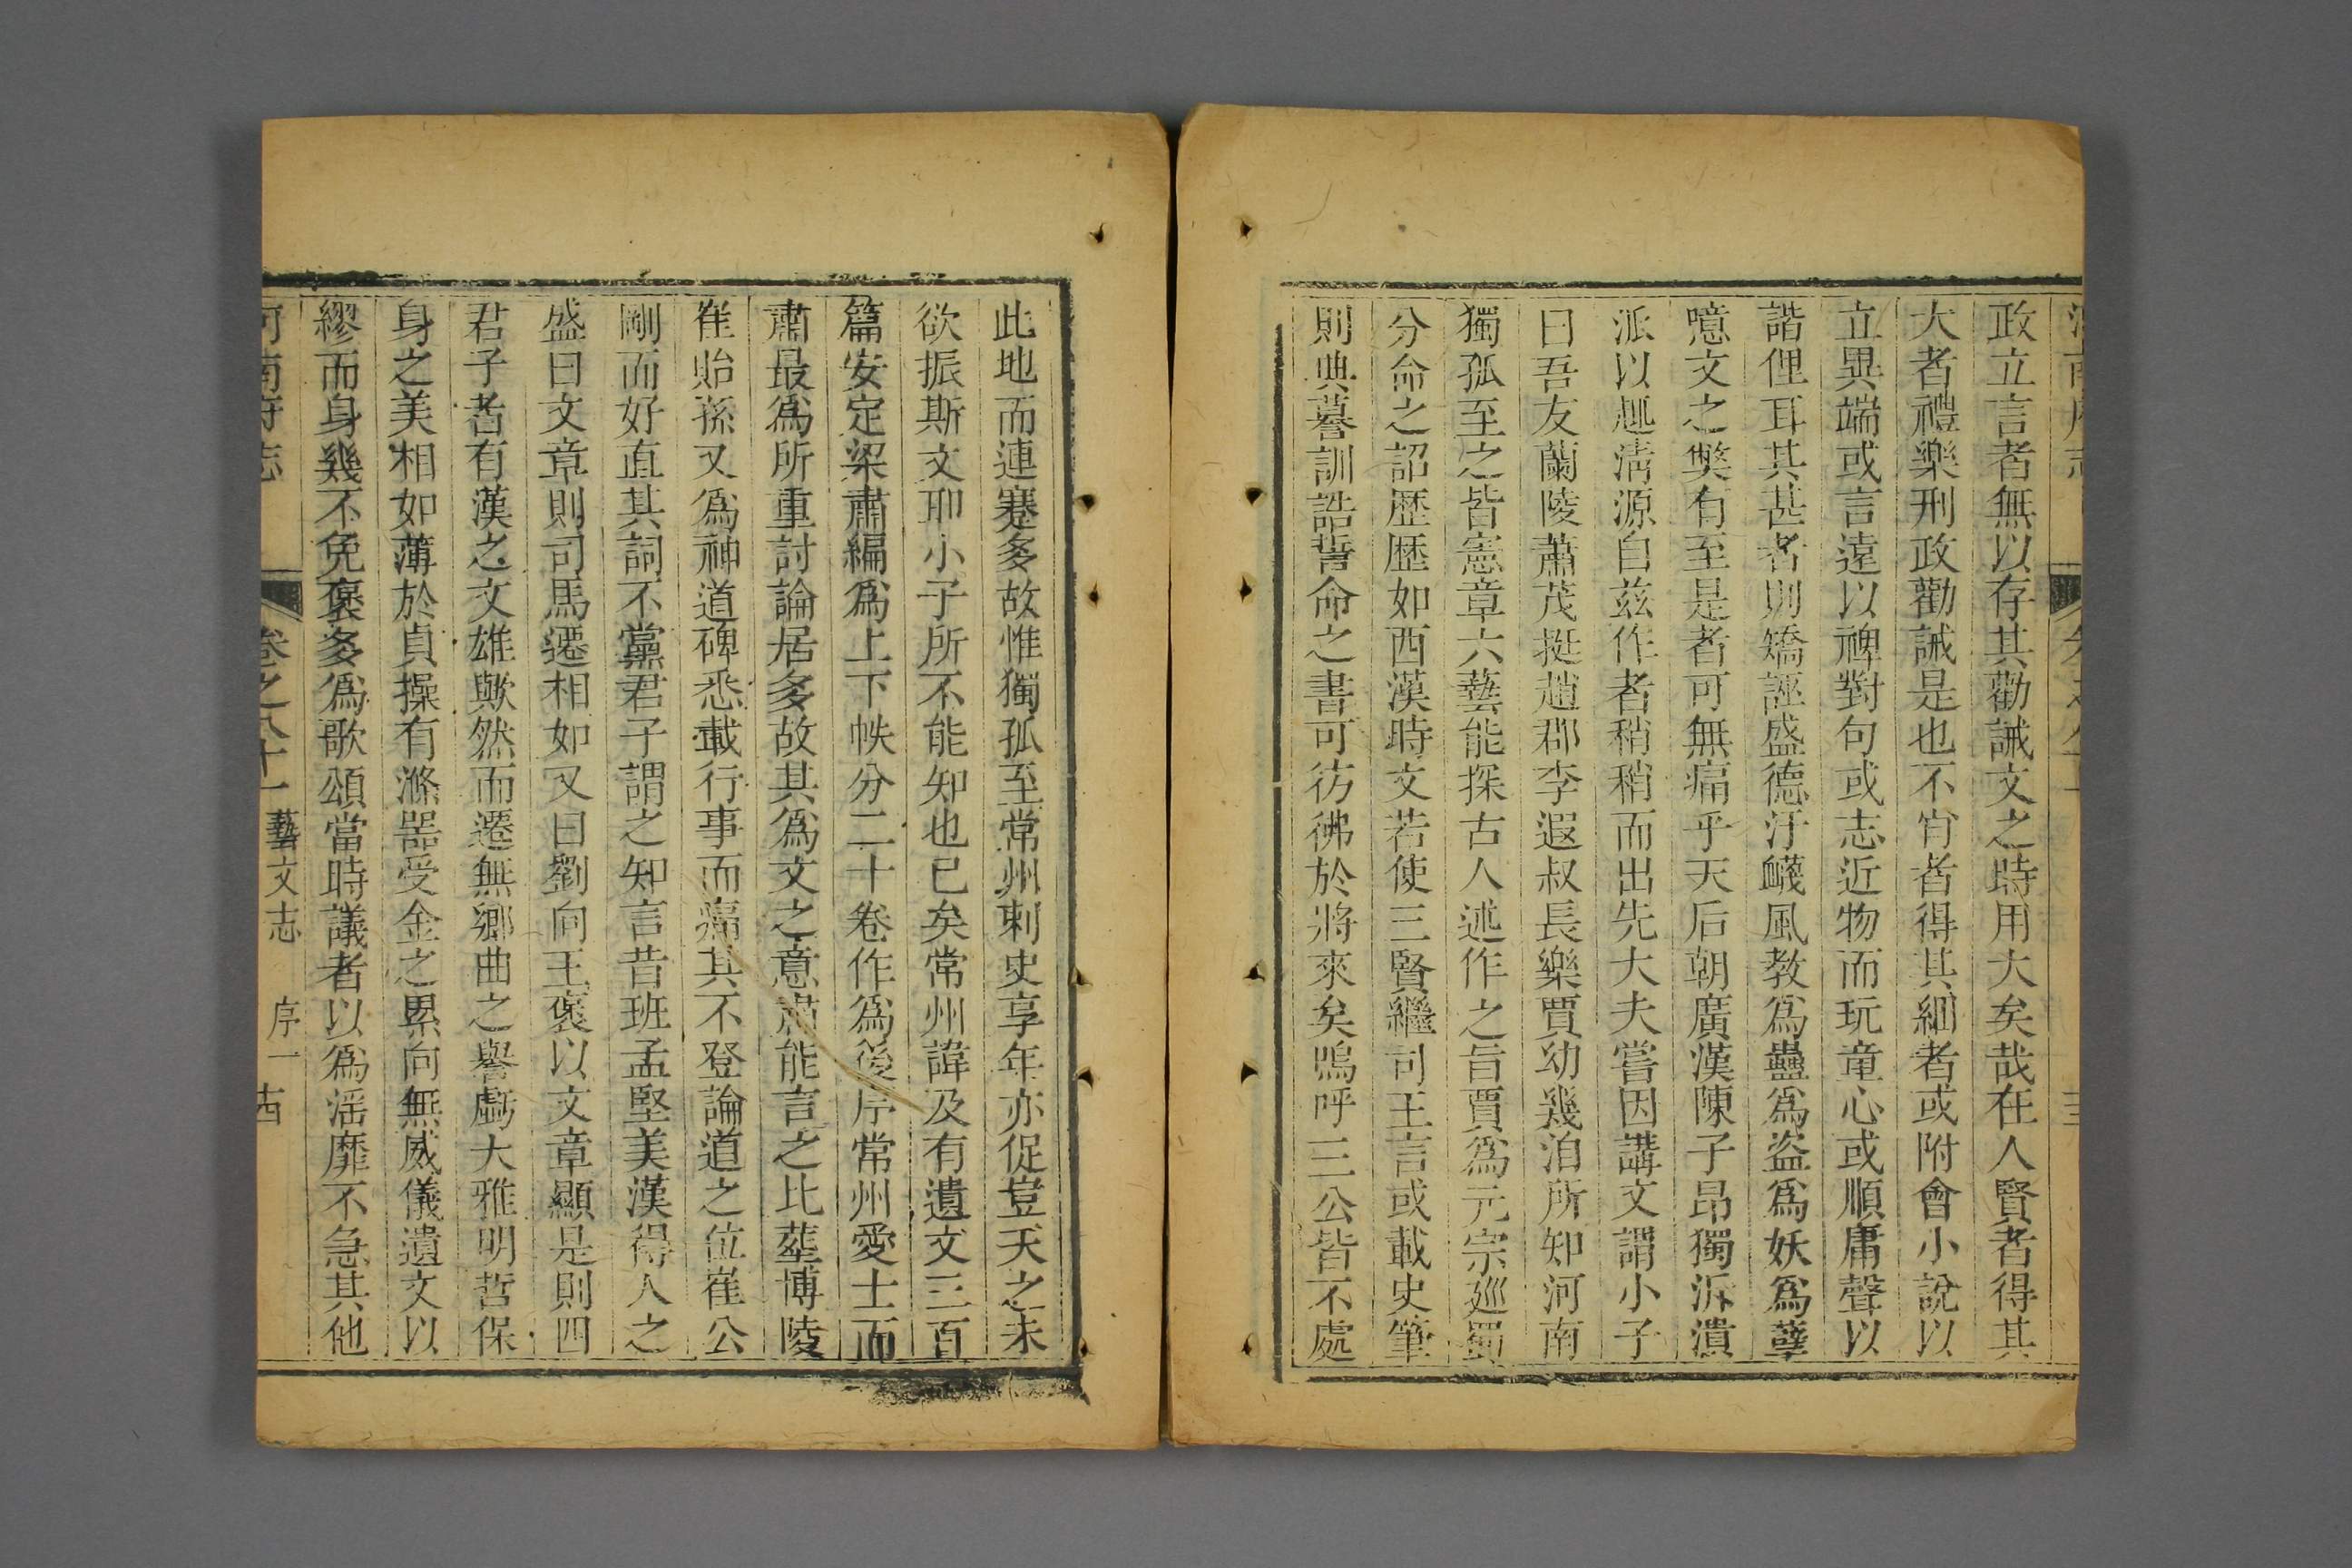 政立言者無以存其勸誡文之時用大矣哉在人賢者得其
大者禮樂刑政勸誡是也不肖者得其細者或附會小說以
立異端或言遠以裨對句或志近物而玩童心或順庸聲以
諧俚耳其甚者則矯誣盛德汙衊風教為蠱為盜為妖為孽
噫文之弊有至是者可無痛乎天后朝廣漢陳子昂獨泝濆
派以趣淸源自茲作者稍稍而出先大夫嘗因講文謂小子
曰吾友蘭陵蕭茂挺趙郡李遐叔長樂賈幼幾洎所知河南
獨孤至之皆憲章六藝能探古人述作之旨賈為元宗巡蜀
分命之詔歷歷如西漢時文若使三賢繼司王言或載史筆
則典謩訓誥誓命之書可彷彿於將來矣嗚呼三公皆不處
此地而連蹇多故惟獨孤至常州刺史享年亦促豈天之未
欲振斯文耶小子所不能知也已矣常州諱及有遺文三百
篇安定梁肅編為上下帙分二十卷作為後序常州愛士而
肅最為所重討論居多故其為文之意肅能言之比葬博陵
崔貽孫又為神道碑悉載行事而痛其不登論道之位崔公
剛而好直其詞不黨君子謂之知言昔班孟堅美漢得人之
盛曰文章則司馬遷相如又曰劉向王褒以文章顯是則四
君子者有漢之文雄歟然而遷無鄉曲之譽虧大雅明哲保
身之美相如薄於貞操有滌器受金之累向無威儀遺文以
繆而身幾不免褒多為歌頌當時議者以為淫靡不急其他
河南府志 卷之八十一 藝文志 序一